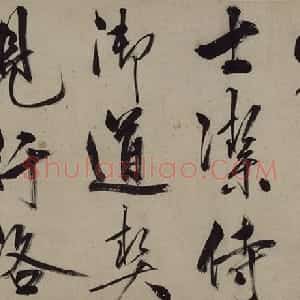 士潔侍
御道契
見行路
Shufaziliao.COM